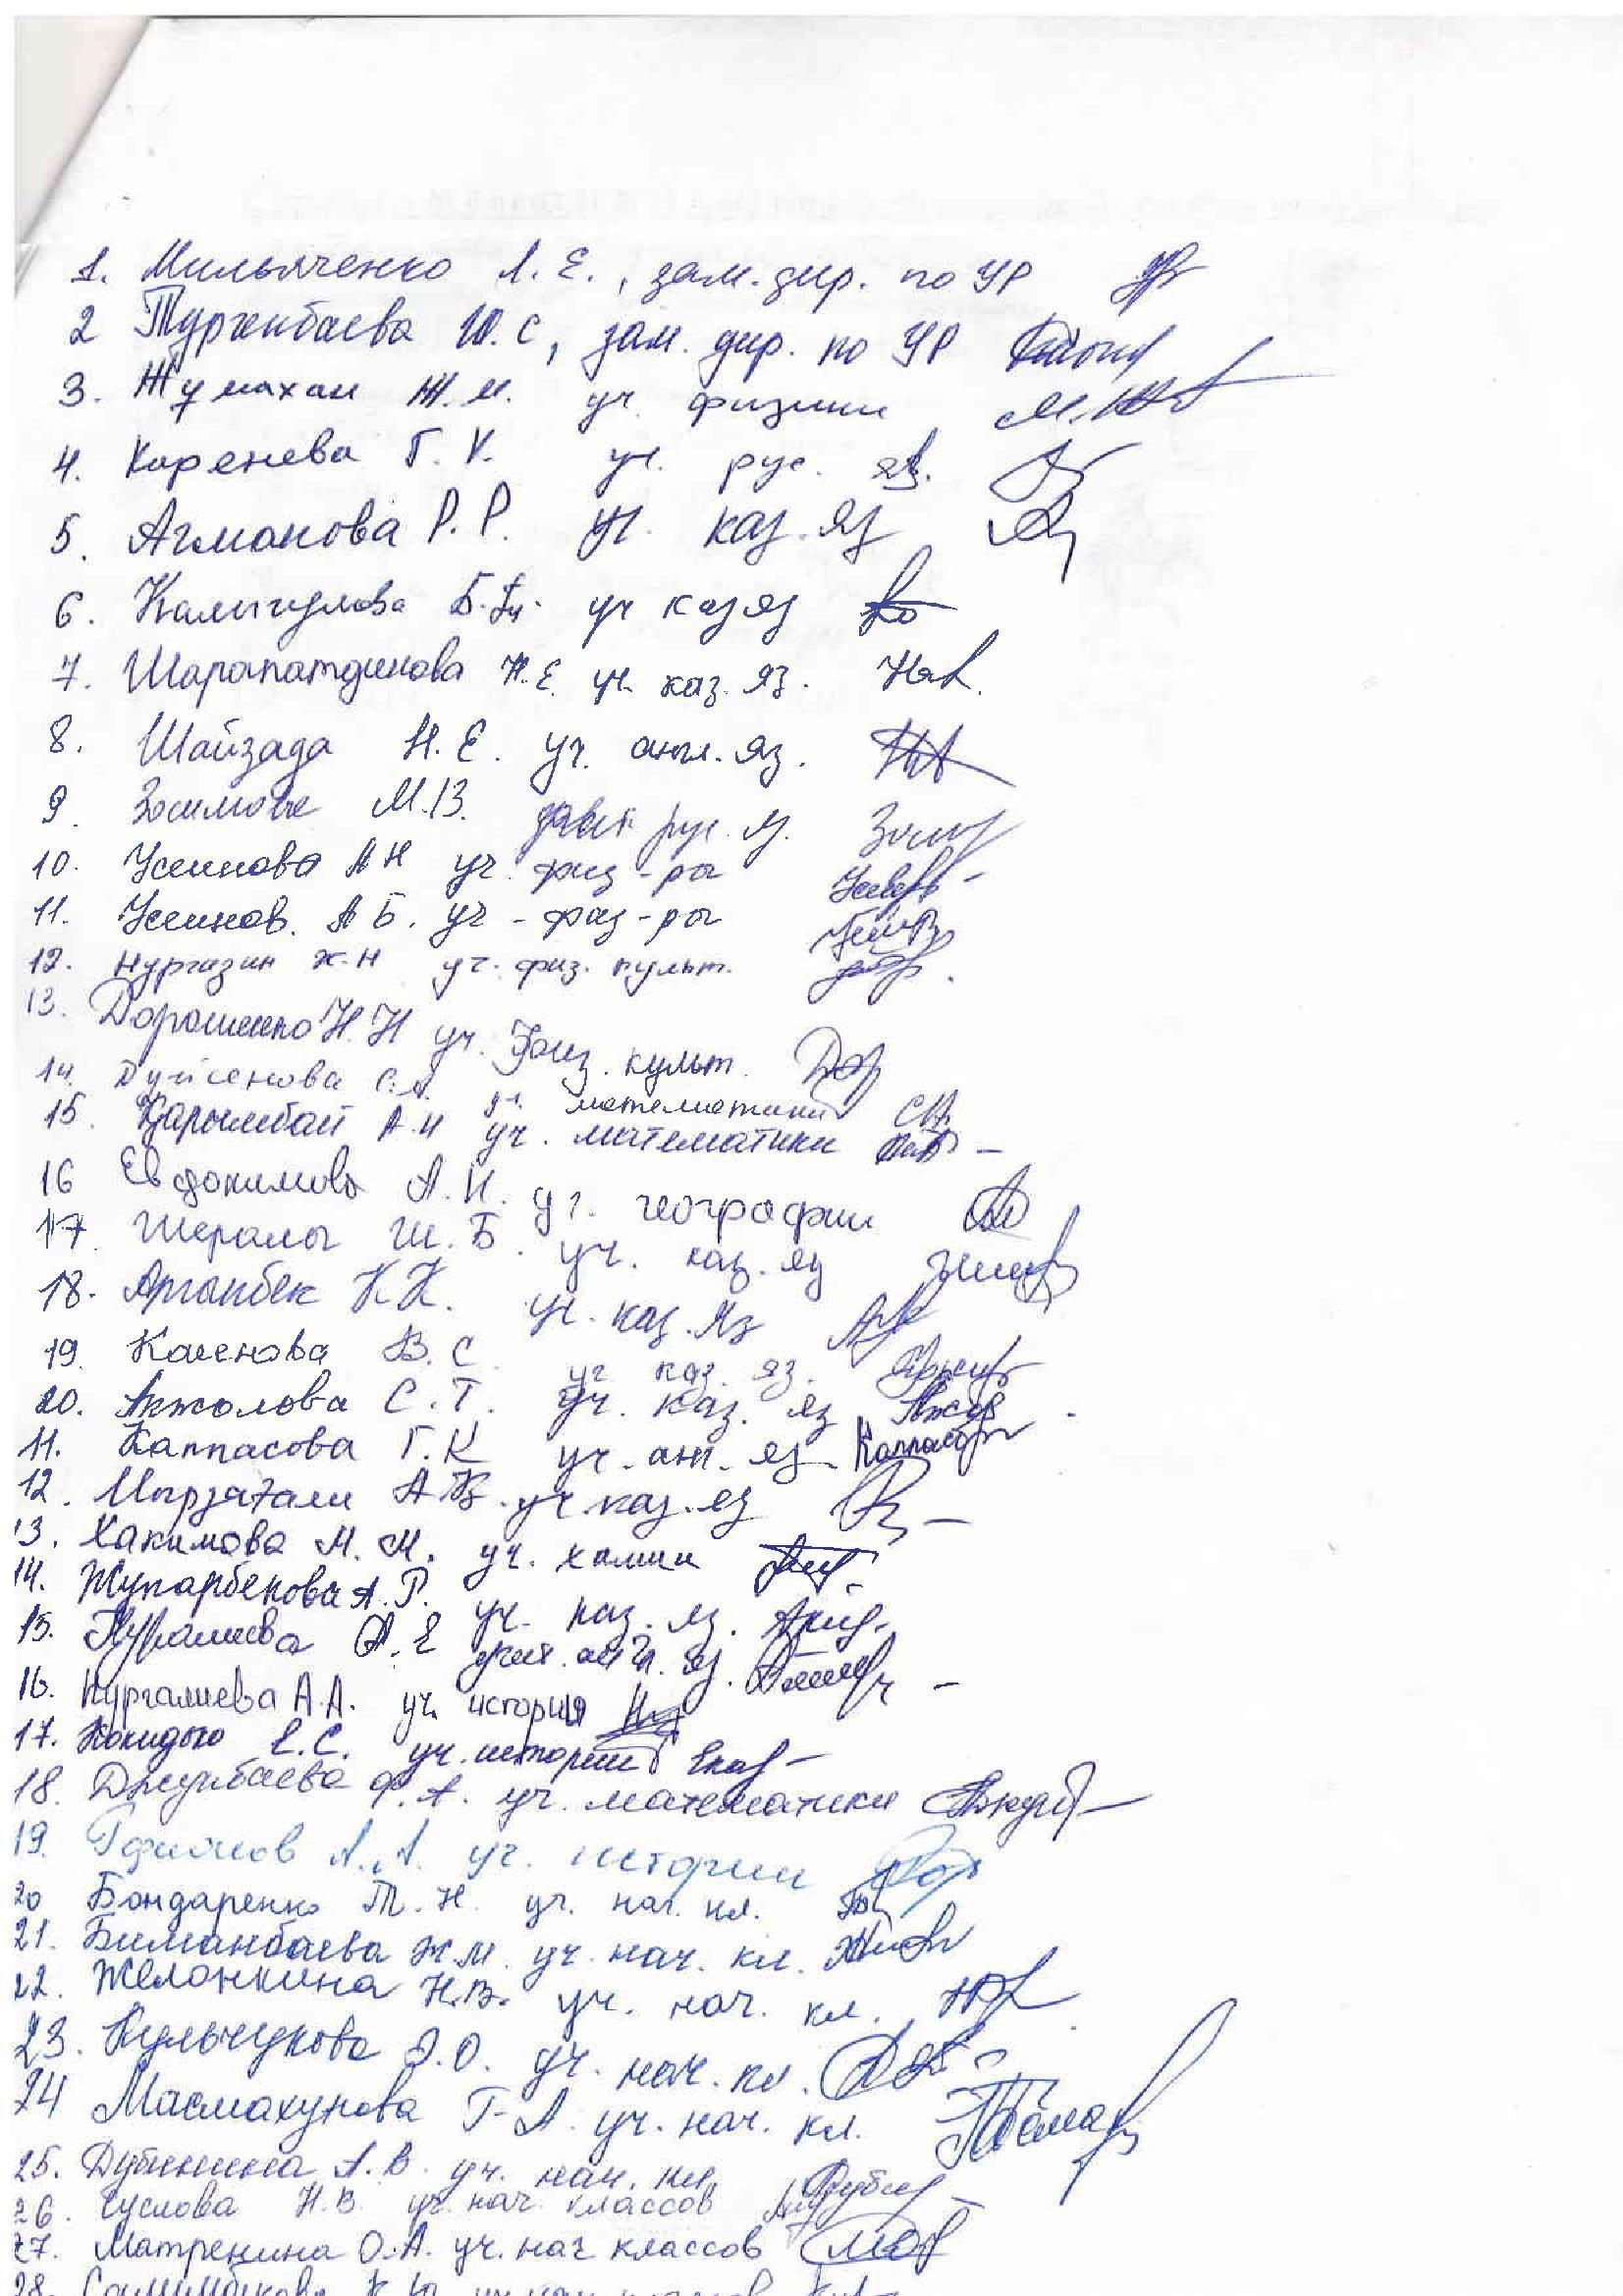 1. Мильяченко Л. Е., зам. дир. по УР
2 Тургенбаева Ш. С, зам. дир. по УР
3. Жумахан Ж. М. уч. физики
4. Каренева Г. К. уч. рус. яз.
5. Агманова Р. Р. уч. каз. яз
6. Калыгулова Б. уч каз яз
7. Шарапатдинова Н. Е. уч. каз. яз.
8. Шайзада Н. Е. уч. англ. яз.
9. Зосимова М. В. рус. яз.
10. Усинова А Н уч. физ-ры
11. Усинов. А Б. уч - физ-ры
12. Нургазин Ж. Н уч. физ. культ.
13. Дорошенко Н. Н уч. физ. культ.
14. Дуйсенова С. А. уч. математики
15. Қарымбай А. Н уч. математики
16 Евдокимова А. И. уч. географии
17. Шералы Ш. Б. уч. каз. яз
18. Арғынбек К К. уч. каз. яз
19. Касенова В. С. уч каз. яз.
20. Акжолова С. Т. уч. каз. яз
11. Каппасова Г. К уч. анг. яз.
12. Мырзағали А Қ. уч каз. яз
13. Хакимова М. М. уч. химии
14. Жупарбекова А. Р. уч. каз. яз.
15. Нуралиева А. Е учит. англ. яз.
16. Нургалиева А. А. уч. истории
17. Е. С. уч. истории
18. Джумбаева Ф. А. уч. математики
19. А. А. уч. истории
20 Бондаренко Т. Н. уч. нач. кл.
21. Биманбаева Ж. М. уч. нач. кл.
22. Желонкина Н. В. уч. нач. кл.
23. Кульчукова Э. О. уч. нач. кл.
24 Масмахунова Г. А. уч. нач. кл.
25. Дубинина А. В. уч. нач. кл.
26. Суслова Н. В. уч. нач. классов
27. Матренина О. А. уч. нач классов
28.